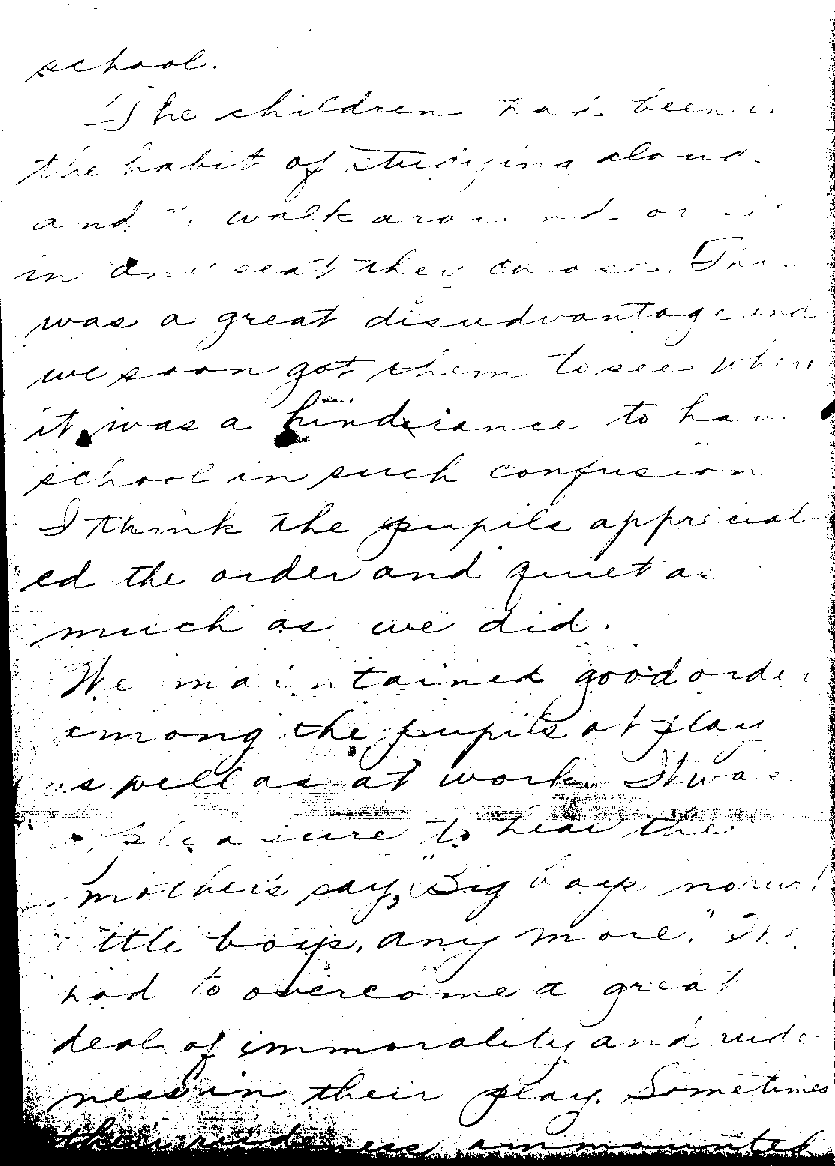 school.
The children had been in
the habit of studying aloud
and walk around or sit
in any seat they choose. This
was a great disadvantage and
we soon got them to see where
it was a hindriance to have
school in such confusion
I think the pupils appriciat
ed the order and quiet as
much as we did.
We maintained good order
among the pupils at play
as well as at work. It was
pleasure to hear the
mothers say, "Big boys
little boys, any more." We
had to overcome a great
deal of immorality and rude
ness in their play. Sometimes
their rudeness ammounted